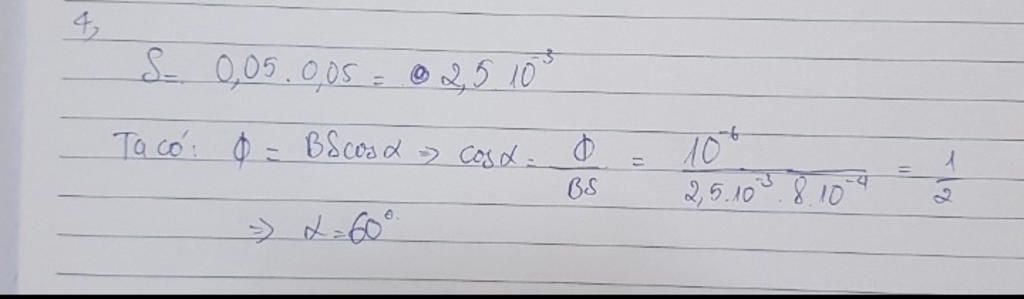 4,
S = 0,05 . 0,05 = 2,5 10⁻³
Ta có: ϕ = BScosα => cosα = ϕ/BS = 10⁻⁶/2,5.10⁻³.8.10⁻⁴ = 1/2
=> α = 60°.